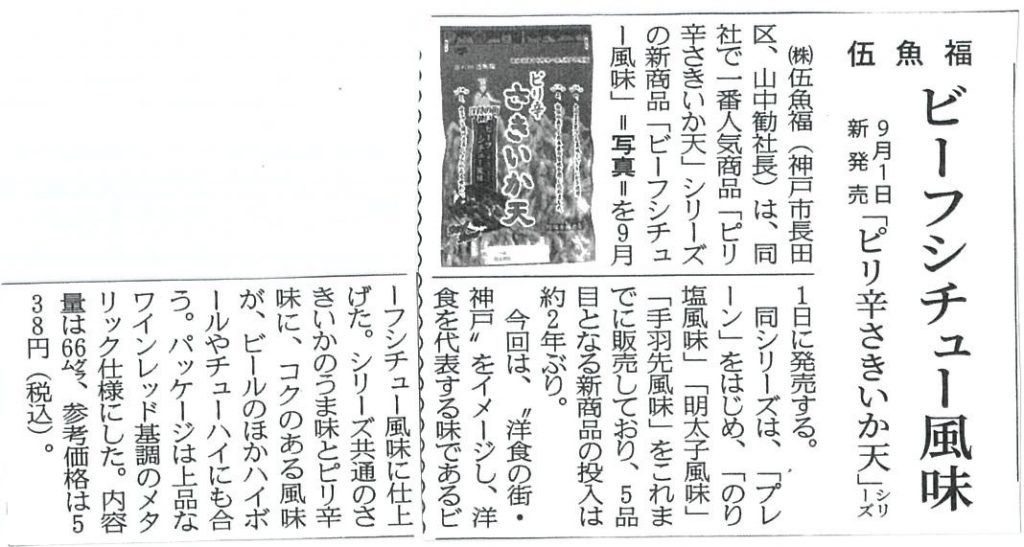 伍魚福
ビーフシチュー風味
9月1日
新発売
「ピリ辛さきいか天」シリーズ
㈱伍魚福（神戸市長田
区、山中勧社長）は、同
社で一番人気商品「ピリ
辛さきいか天」シリーズ
の新商品「ビーフシチュ
ー風味」＝写真＝を9月
ピリ辛
さきいか天
1日に発売する。
同シリーズは、「プレ
ーン」をはじめ、「のり
塩風味」「明太子風味」
「手羽先風味」をこれま
でに販売しており、5品
目となる新商品の投入は
約2年ぶり。
今回は、〝洋食の街・
神戸〟をイメージし、洋
食を代表する味であるビ
ーフシチュー風味に仕上
げた。シリーズ共通のさ
きいかのうま味とピリ辛
味に、コクのある風味
が、ビールのほかハイボ
ールやチューハイにも合
う。パッケージは上品な
ワインレッド基調のメタ
リック仕様にした。内容
量は66㌘、参考価格は5
38円（税込）。